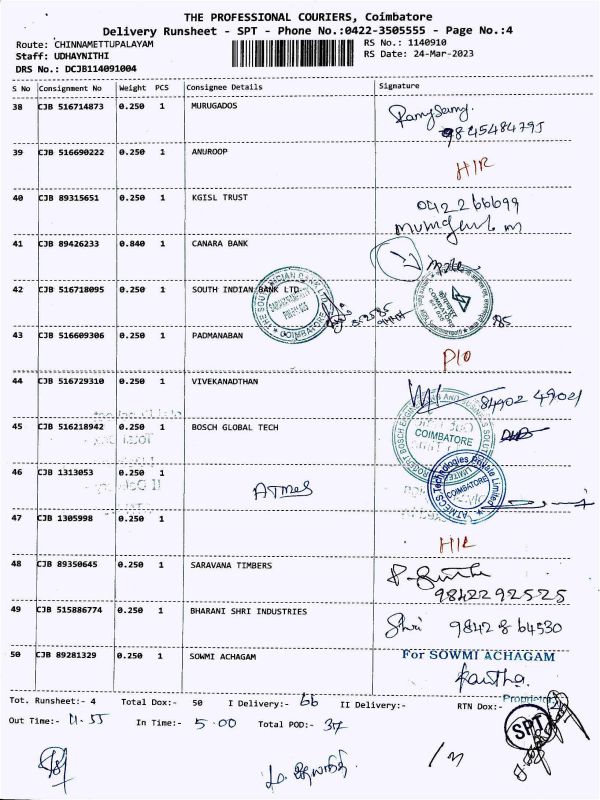 THE PROFESSIONAL COURIERS, Coimbatore
Delivery Runsheet - SPT - Phone No.:0422-3505555 - Page No.:4
Route: CHINNAMETTUPALAYAM
RS No.: 1140910
Staff: UDHAYNITHI
RS Date: 24-Mar-2023
DRS No.: DCJB114091004
S No Consignment No Weight PCS Consignee Details Signature
38 CJB 516714873 0.250 1 MURUGADOS
39 CJB 516690222 0.250 1 ANUROOP H/R
40 CJB 89315651 0.250 1 KGISL TRUST 0422 66699
41 CJB 89426233 0.840 1 CANARA BANK
42 CJB 516718095 0.250 1 SOUTH INDIAN BANK LTD.
THE SOUTH INDIAN BANK LTD. COIMBATORE
43 CJB 516609306 0.250 1 PADMANABAN P/O
44 CJB 516729310 0.250 1 VIVEKANADTHAN 84902 49021
45 CJB 516218942 0.250 1 BOSCH GLOBAL TECH
COIMBATORE
46 CJB 1313053 0.250 1 ATMECS
ATMECS Technologies Private Limited COIMBATORE
47 CJB 1305998 0.250 1 H/R
48 CJB 89350645 0.250 1 SARAVANA TIMBERS
98422 92525
49 CJB 515886774 0.250 1 BHARANI SHRI INDUSTRIES Shri 98428 64530
50 CJB 89281329 0.250 1 SOWMI ACHAGAM For SOWMI ACHAGAM
Proprietor
Tot. Runsheet:- 4 Total Dox:- 50 I Delivery:- 66 II Delivery:- RTN Dox:-
Out Time:- 11.55 In Time:- 5.00 Total POD:- 37
SPT